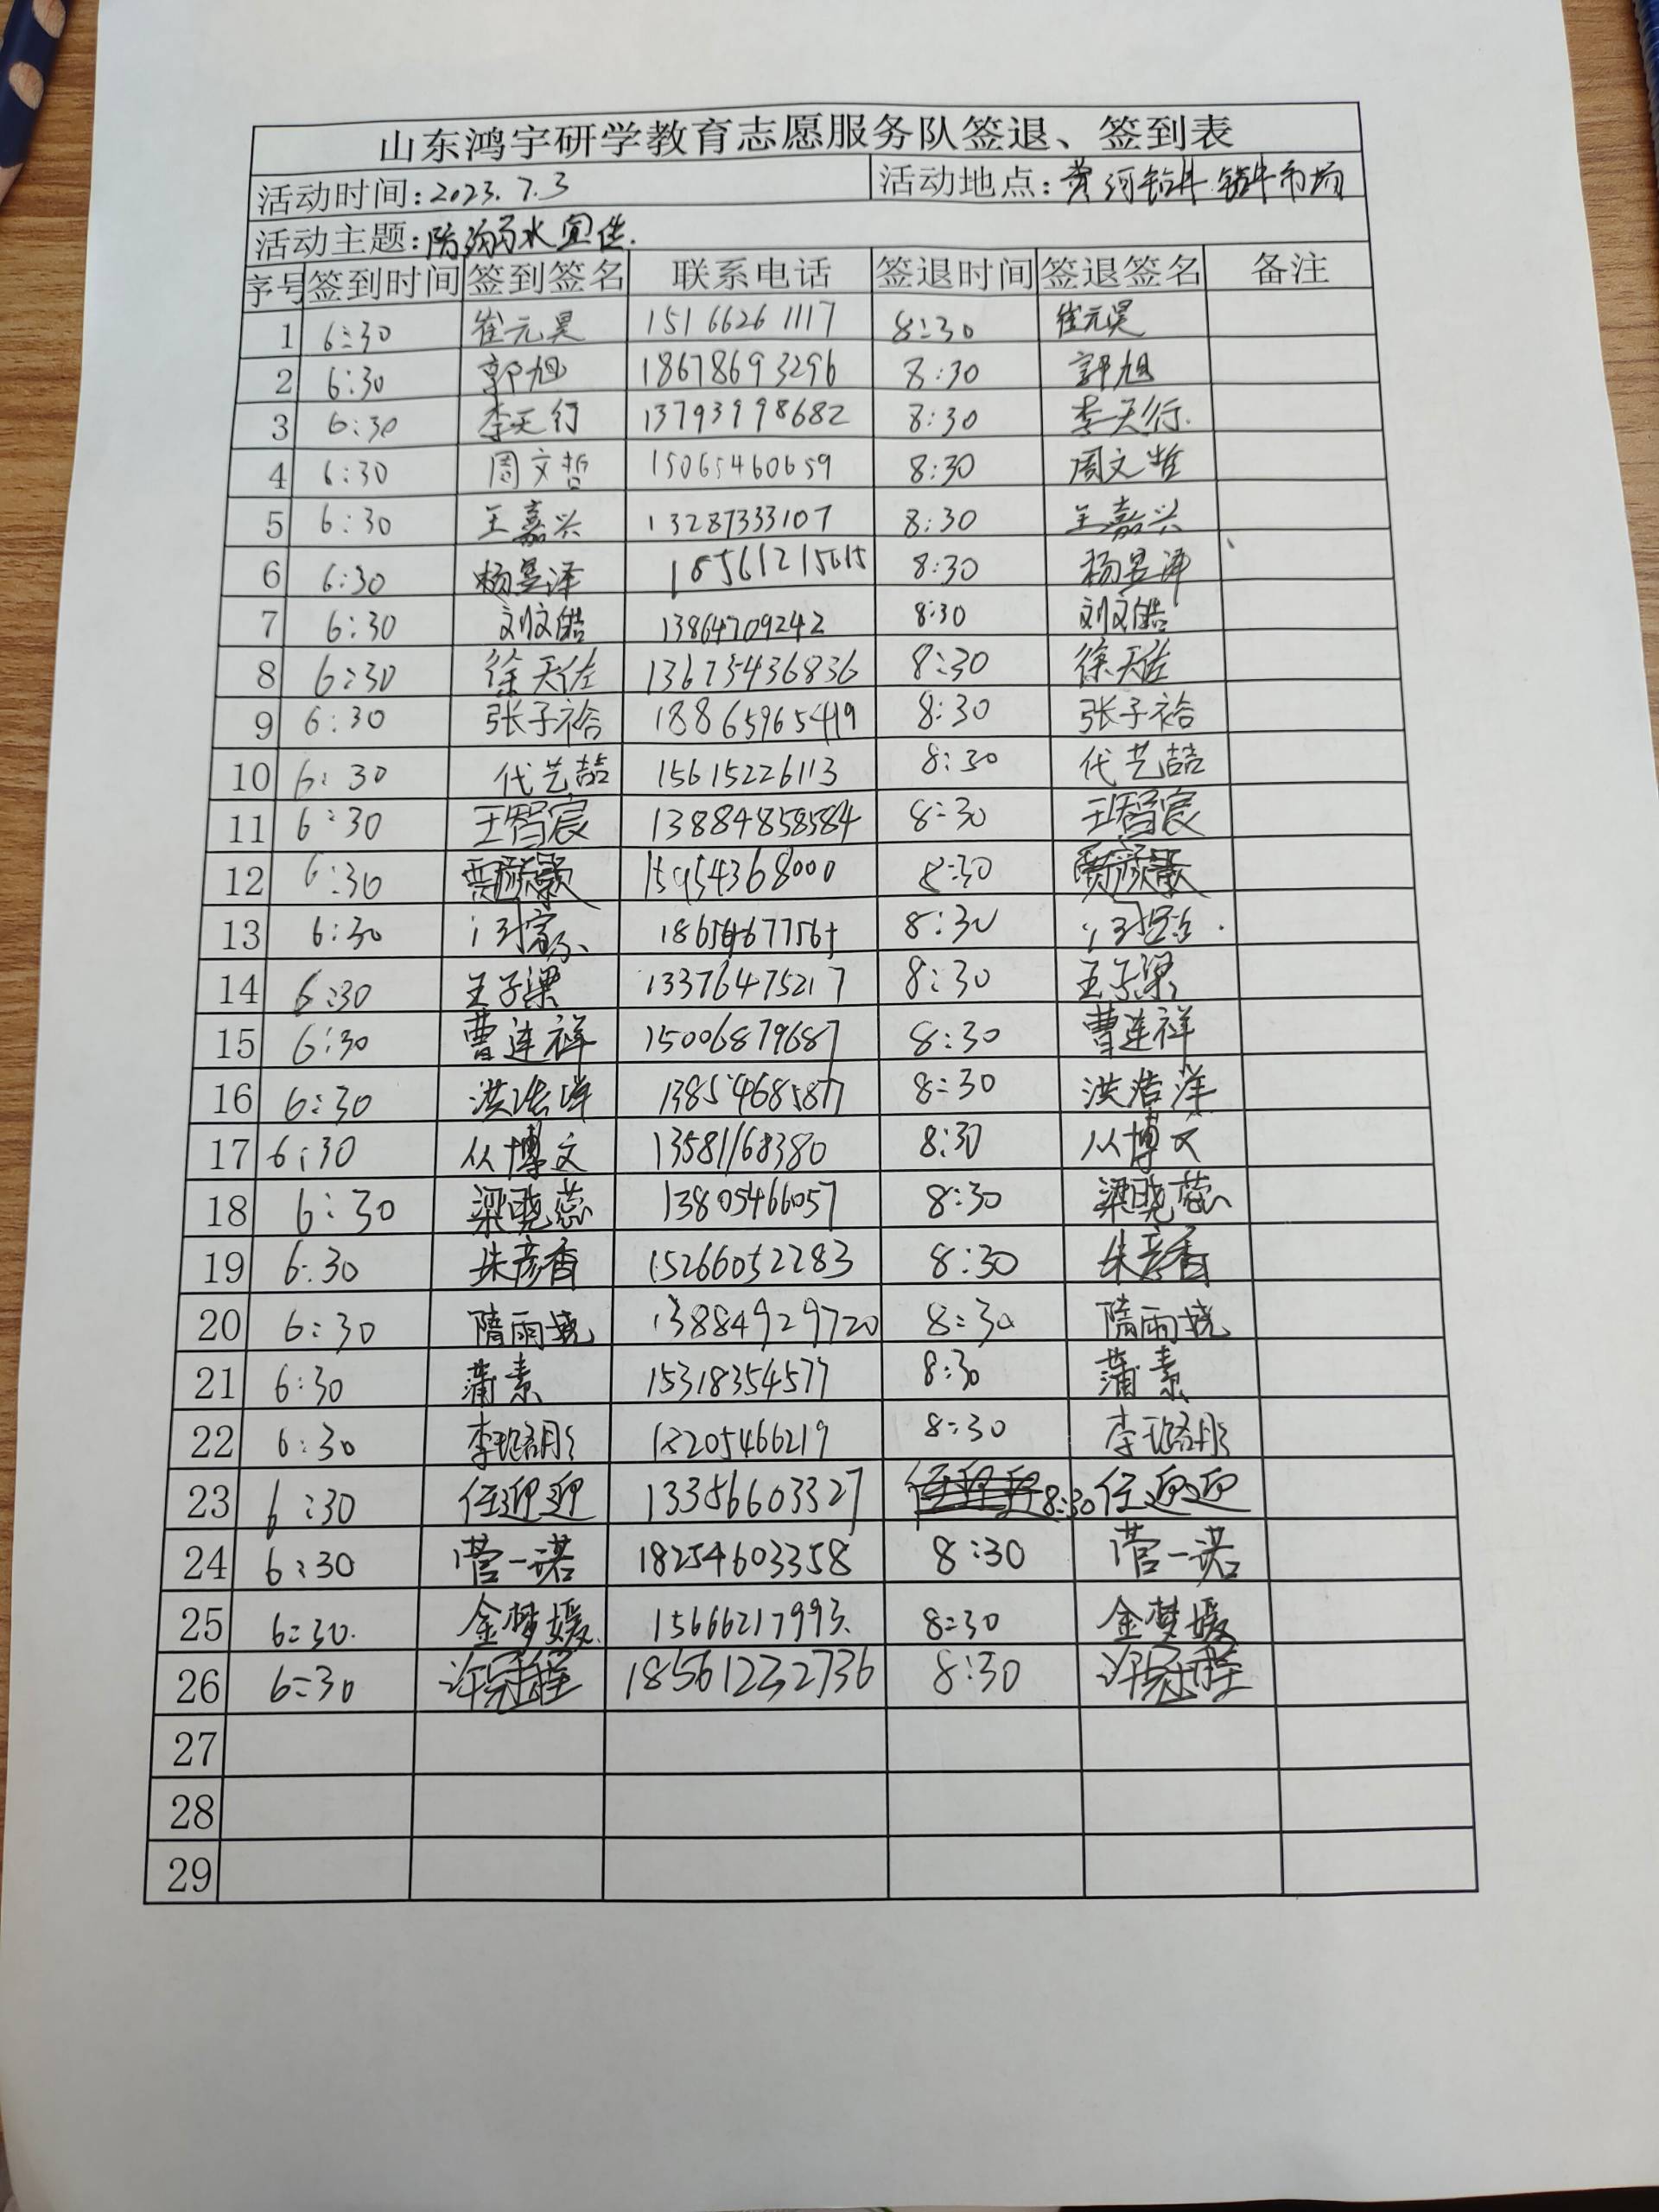 山东鸿宇研学教育志愿服务队签退、签到表
活动时间:2023.7.3 活动地点:黄河钻井 钻井市场
活动主题:防溺水宣传.
序号 签到时间 签到签名 联系电话 签退时间 签退签名 备注
1 6:30 崔元昊 15166261117 8:30 崔元昊
2 6:30 郭旭 18678693296 8:30 郭旭
3 6:30 李天行 13793998682 8:30 李天行.
4 6:30 周文哲 15065460659 8:30 周文哲
5 6:30 王嘉兴 13287333107 8:30 王嘉兴
6 6:30 杨昱泽 18561215615 8:30 杨昱泽
7 6:30 刘文皓 13864709242 8:30 刘文皓
8 6:30 徐天佐 13675436836 8:30 徐天佐
9 6:30 张子袷 18865965419 8:30 张子袷
10 6:30 代艺喆 15615226113 8:30 代艺喆
11 6:30 王智宸 13884858584 8:30 王智宸
12 6:30 15954368000 8:30
13 6:30 8:30
14 6:30 王子梁 13376475217 8:30 王子梁
15 6:30 曹连祥 15006879687 8:30 曹连祥
16 6:30 洪浩洋 13854685877 8:30 洪浩洋
17 6:30 从博文 13581168380 8:30 从博文
18 6:30 梁晓蕊 13805466057 8:30 梁晓蕊
19 6:30 朱彦香 15266052283 8:30 朱彦香
20 6:30 隋雨 13884929720 8:30 隋雨
21 6:30 蒲素 15318354577 8:30 蒲素
22 6:30 李珞彤 13205466219 8:30 李珞彤
23 6:30 任迎迎 13356603327 8:30 任迎迎
24 6:30 菅一诺 18254603358 8:30 菅一诺
25 6:30. 金梦媛. 15666217993. 8:30 金梦媛
26 6:30 许冠程 18561232736 8:30 许冠程
27
28
29